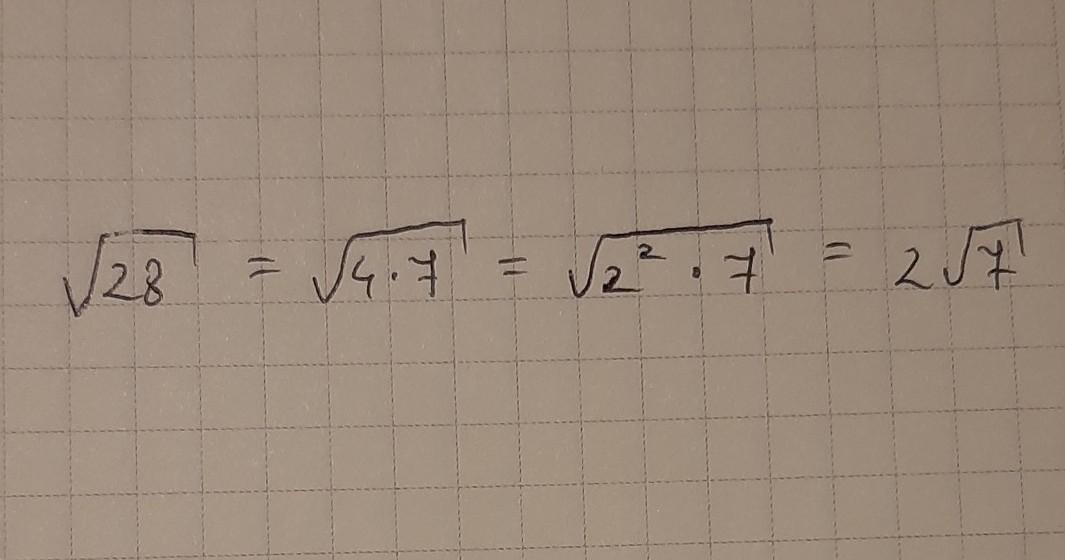 √28 = √4·7 = √2² · 7 = 2√7